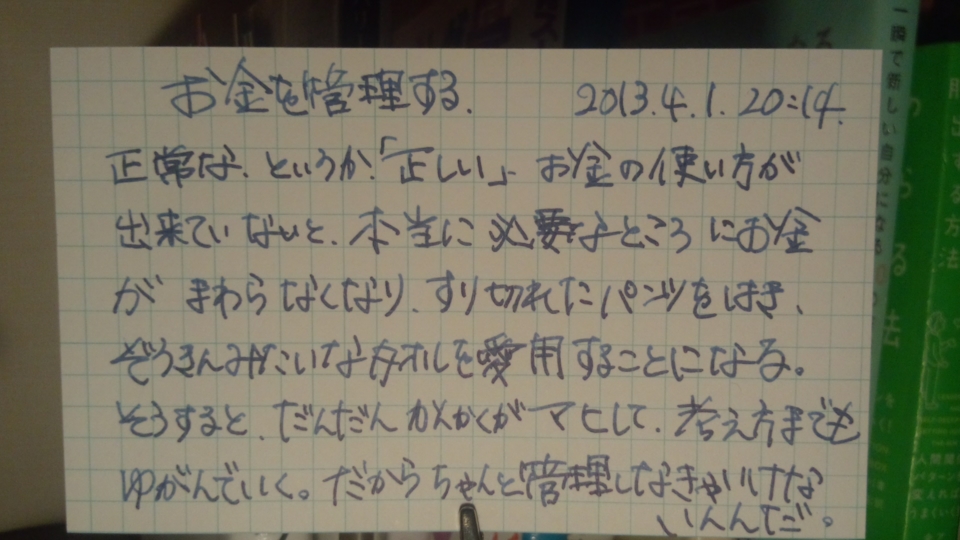 お金を管理する. 2013.4.1. 20:14.
正常な、というか「正しい」お金の使い方が
出来ていないと、本当に必要なところにお金
がまわらなくなり、すり切れたパンツをはき、
ぞうきんみたいなタオルを愛用することになる。
そうすると、だんだんかんかくがマヒして、考え方までも
ゆがんでいく。だからちゃんと管理しなきゃいけな
いんんだ。
一瞬で新しい自分になる